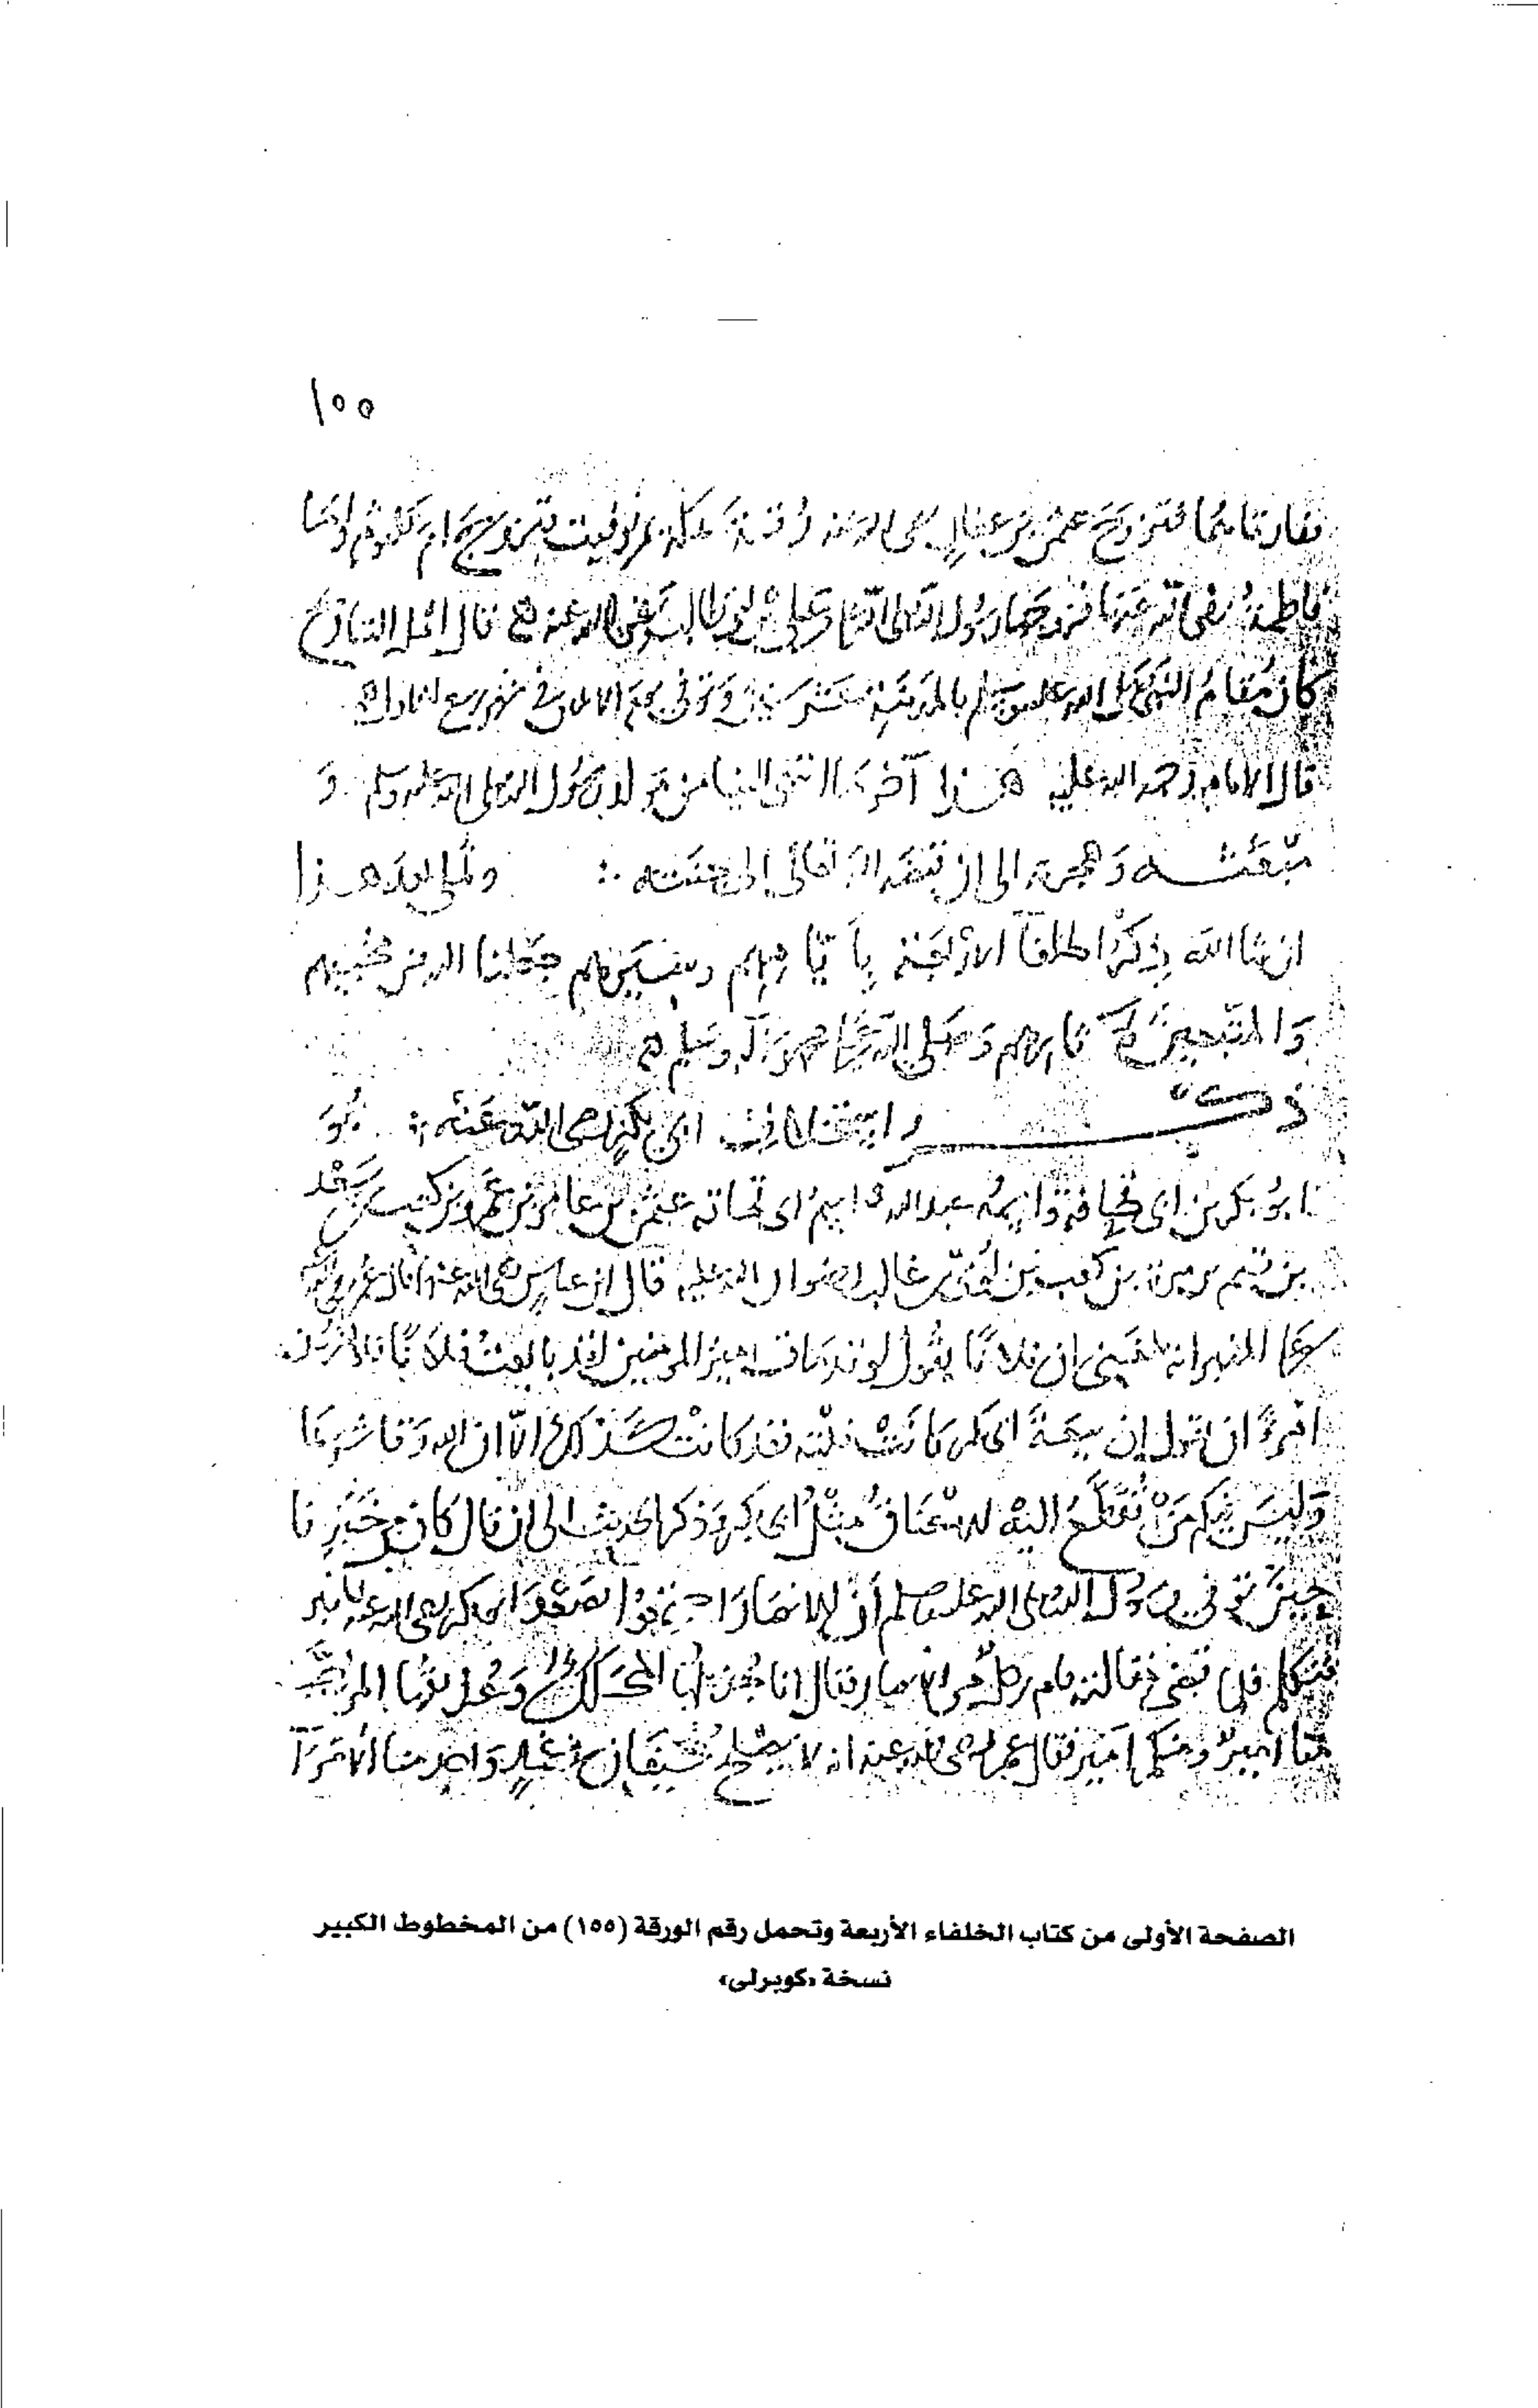 ١٥٥
ففارقاهما فتزوج عثمن بن عفان رضى الله عنه رقية بمكة ثم توفيت فتزوج ام كلثوم واما
فاطمة رضى الله عنها فزوجها رسول الله صلى الله عليه على بن ابى طالب رضى الله عنه قال اهل التاريخ
كان مقام النبى صلى الله عليه وسلم بالمدينة عشر سنين وتوفى فى شهر ربيع الاول
قال الامام رحمه الله عليه هذا آخر ما انتهى الينا من مولد رسول الله صلى الله عليه وسلم و
مبعثه وهجرته الى ان قبضه الله تعالى الى جنته ولى بعد هذا
ان شا الله بذكر الخلفا الاربعة بايامهم وسنينهم جعلنا الله من محبيهم
والمتبعين لآثارهم وصلى الله على محمد وآله وسلم
ذكر استخلاف ابى بكر رضى الله عنه هو
ابو بكر بن ابى قحافة واسمه عبد الله واسم ابى قحافة عثمن بن عامر بن عمرو بن كعب بن سعد
بن تيم بن مرة بن كعب بن لؤى بن غالب رضوان الله عليه قال ابن عباس رضى الله عنه قال عمر رضى الله
على المنبر انه بلغنى ان فلانا يقول لو قد مات امير المؤمنين لقد بايعت فلانا فلا يغرن
امرءا ان يقول ان بيعة ابى بكر كانت فلتة فقد كانت كذلك الا ان الله وقا شرها
وليس فيكم من تقطع اليه الاعناق مثل ابى بكر وذكر الحديث الى ان قال كان من خبرنا
حين توفى رسول الله صلى الله عليه وسلم ان الانصار اجتمعوا فصعد ابو بكر رضى الله عنه المنبر
فتكلم فلما قضى مقالته قام رجل من الانصار فقال انا جذيلها المحكك وعذيقها المرجب
منا امير ومنكم امير فقال عمر رضى الله عنه انه لا يصلح سيفان فى غمد واحد منا الامرا
الصفحة الأولى من كتاب الخلفاء الأربعة وتحمل رقم الورقة (١٥٥) من المخطوط الكبير
نسخة «كوبرلى»